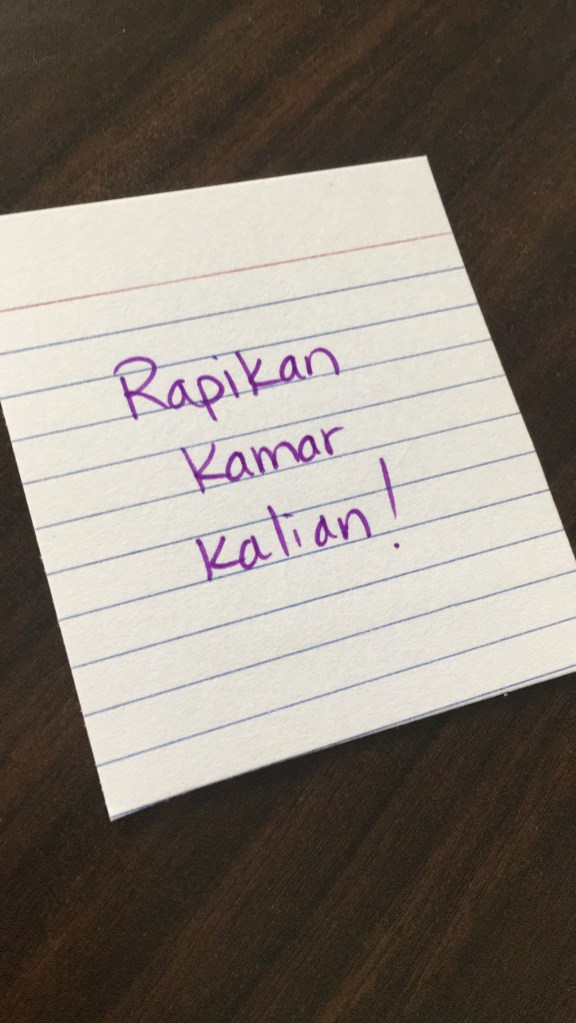 Rapikan
Kamar
Kalian!